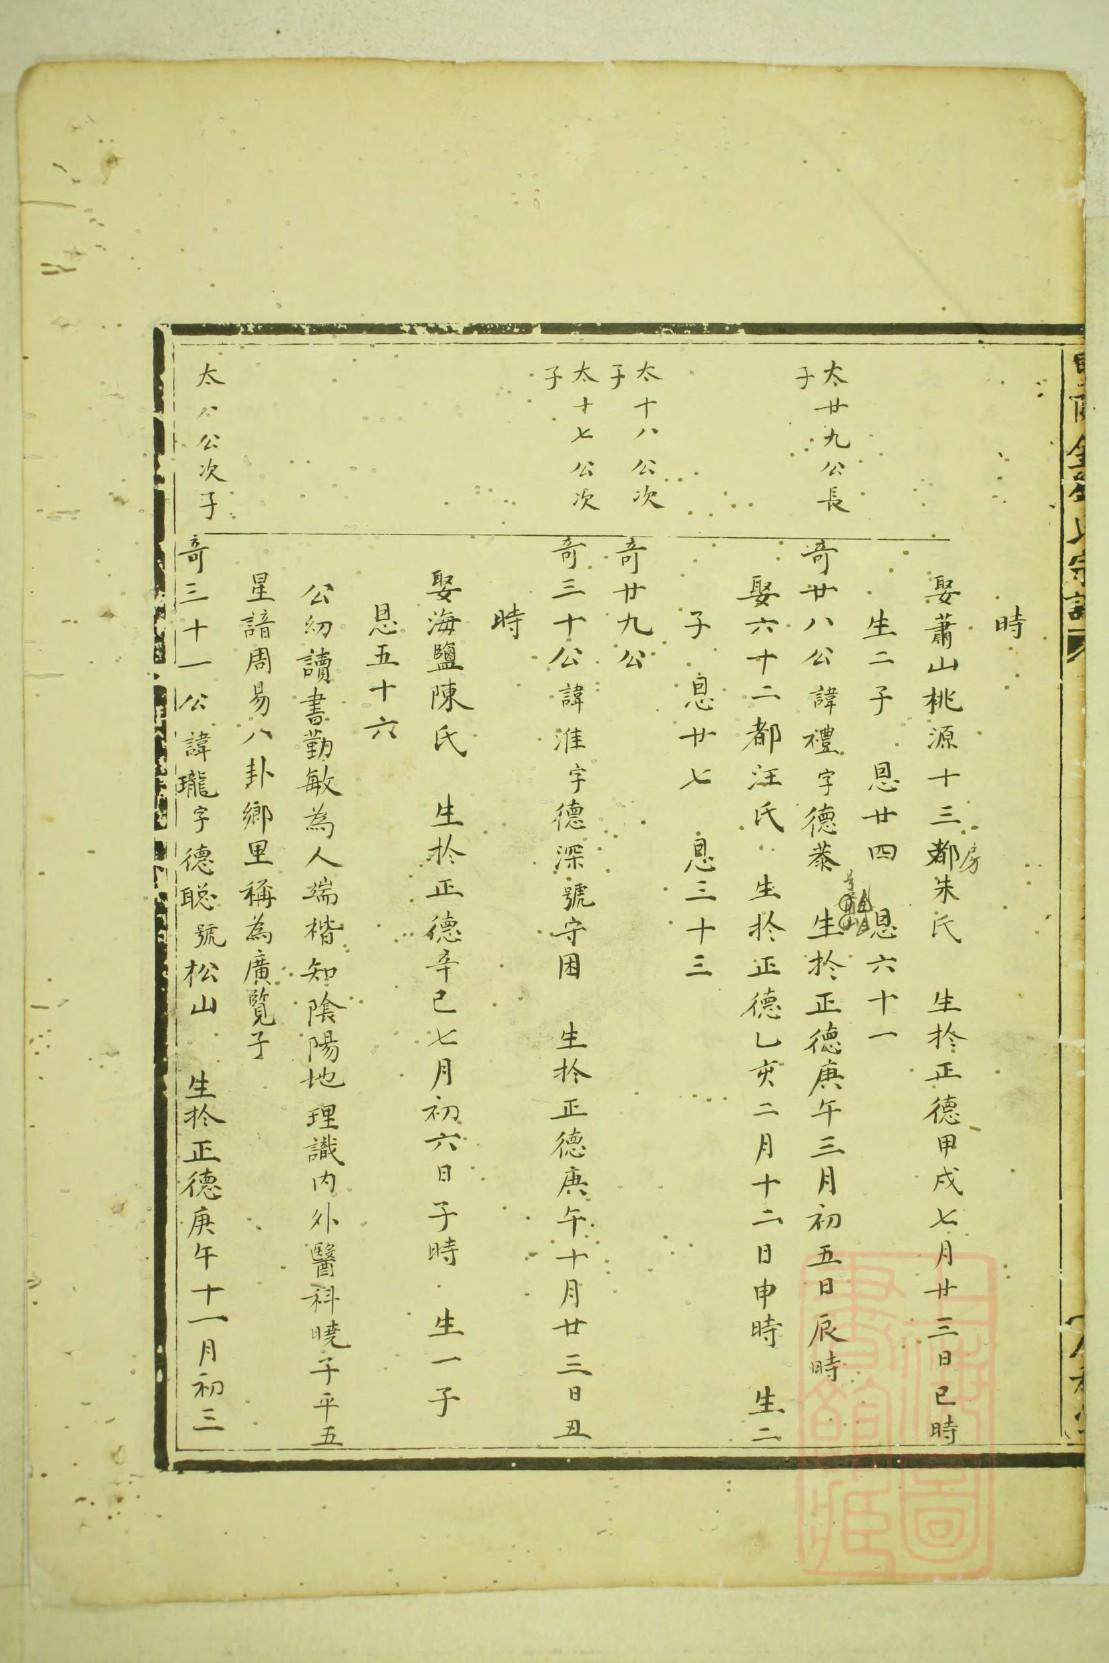 時
娶蕭山桃源十三都朱氏 生於正德甲戌七月廿三日巳時
房
生二子 恩廿四 恩六十一
太廿九公長子
奇廿八公諱禮字德恭 生於正德庚午三月初五日辰時
娶六十二都汪氏 生於正德乙亥二月十二日申時 生二
子 恩廿七 恩三十三
太十八公次子
奇廿九公
太十七公次子
奇三十公諱淮字德深號守困 生於正德庚午十月廿三日丑
時
娶海鹽陳氏 生於正德辛巳七月初六日子時 生一子
恩五十六
公幼讀書勤敏為人端楷知陰陽地理識内外醫科曉子平五
星諳周易八卦鄉里稱為廣覽子
太八公次子
奇三十一公諱瓏字德聪號松山 生於正德庚午十一月初三
上海圖書館藏